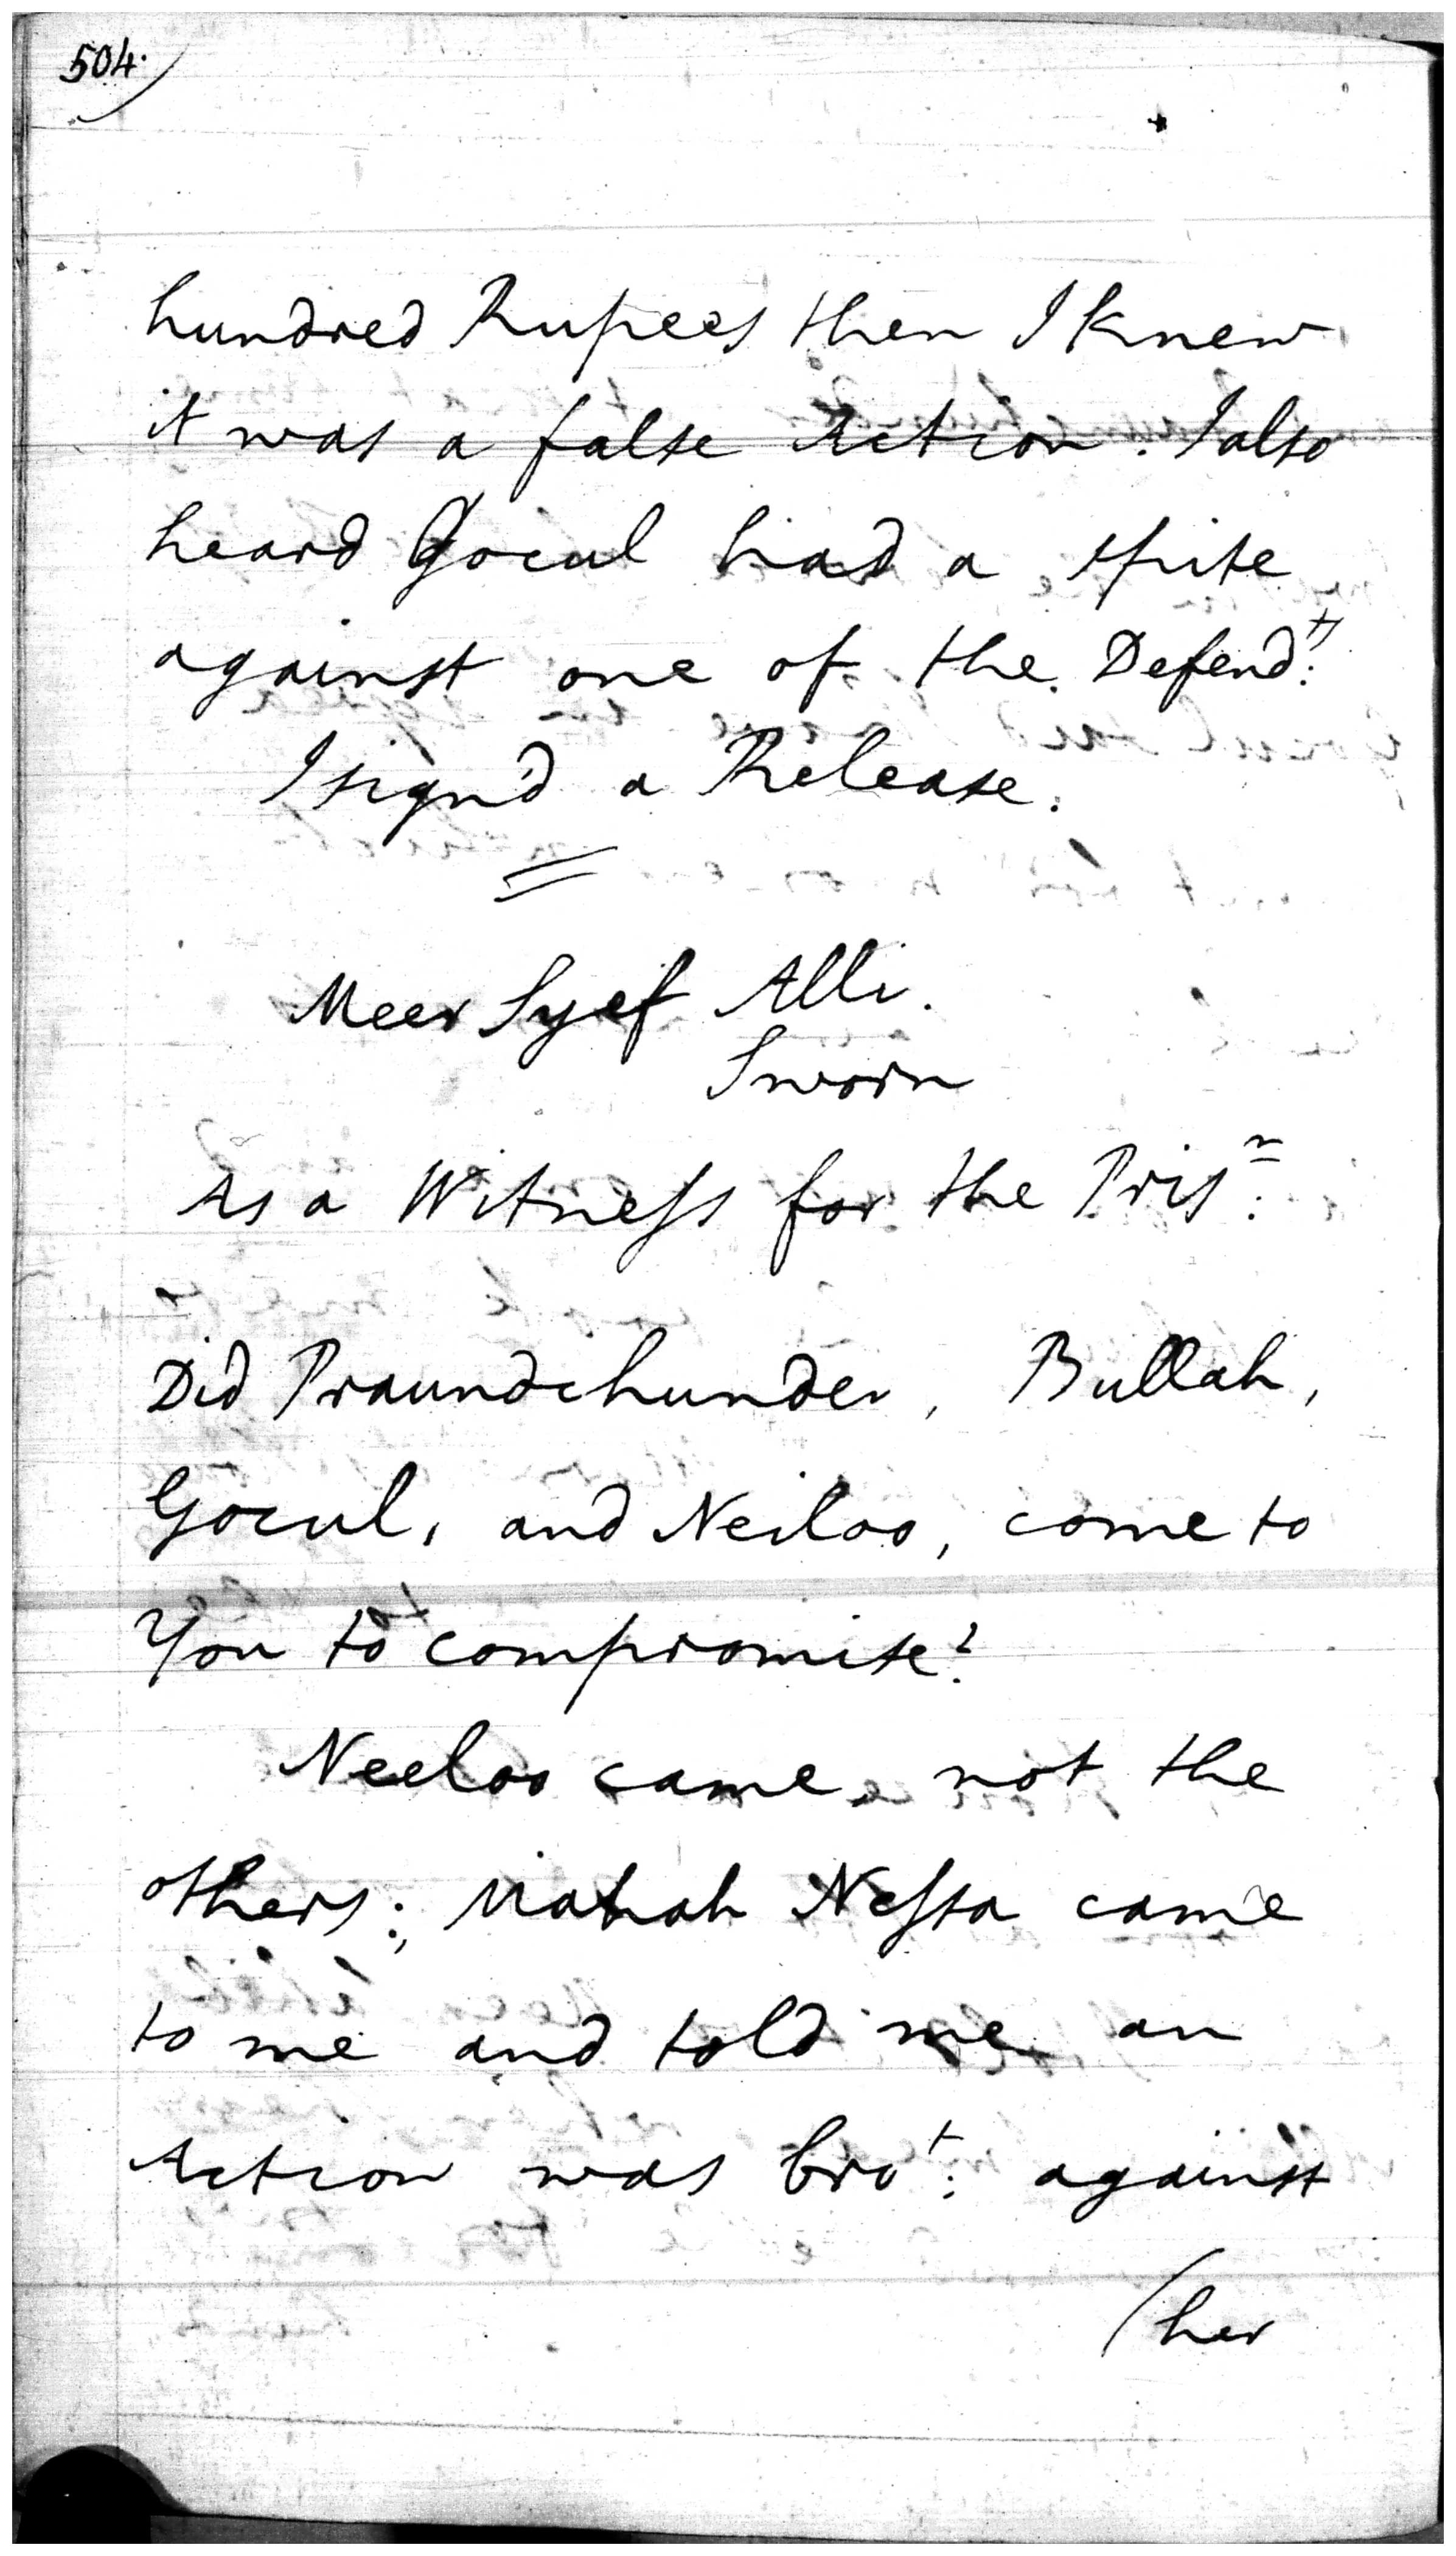 504.
hundred Rupees then I knew
it was a false Action. I also
heard Gocul had a spite
against one of the Defend.ts
I sign'd a Release.
Meer Syef Alli.
Sworn
As a Witness for the Pris.r
Did Praundchunder, Bullah,
Gocul, and Neiloo, come to
You to compromise?
Neeloo came, not the
others; Mahah Nessa came
to me and told me an
Action was bro.t against
/her